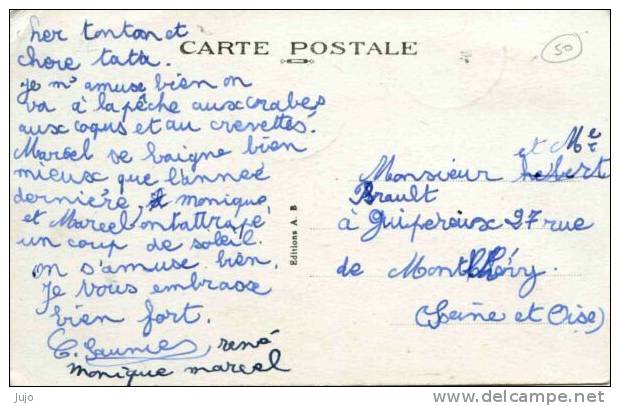 cher tonton et
chere tata.
je m'amuse bien on
va à la pêche aux crabes
aux coqus et au crevettes.
Marcel se baigne bien
mieux que l'année
dernière, monique,
et Marcel ont attrapé
un coup de soleil.
on s'amuse bien.
Je vous embrasse
bien fort.
rené
monique marcel
CARTE POSTALE
50
Editions A. B
et Me
Monsieur hebert
Brault
à Guipereux 27 rue
de Montlhéry.
(Seine et Oise)
Jujo
www.delcampe.net